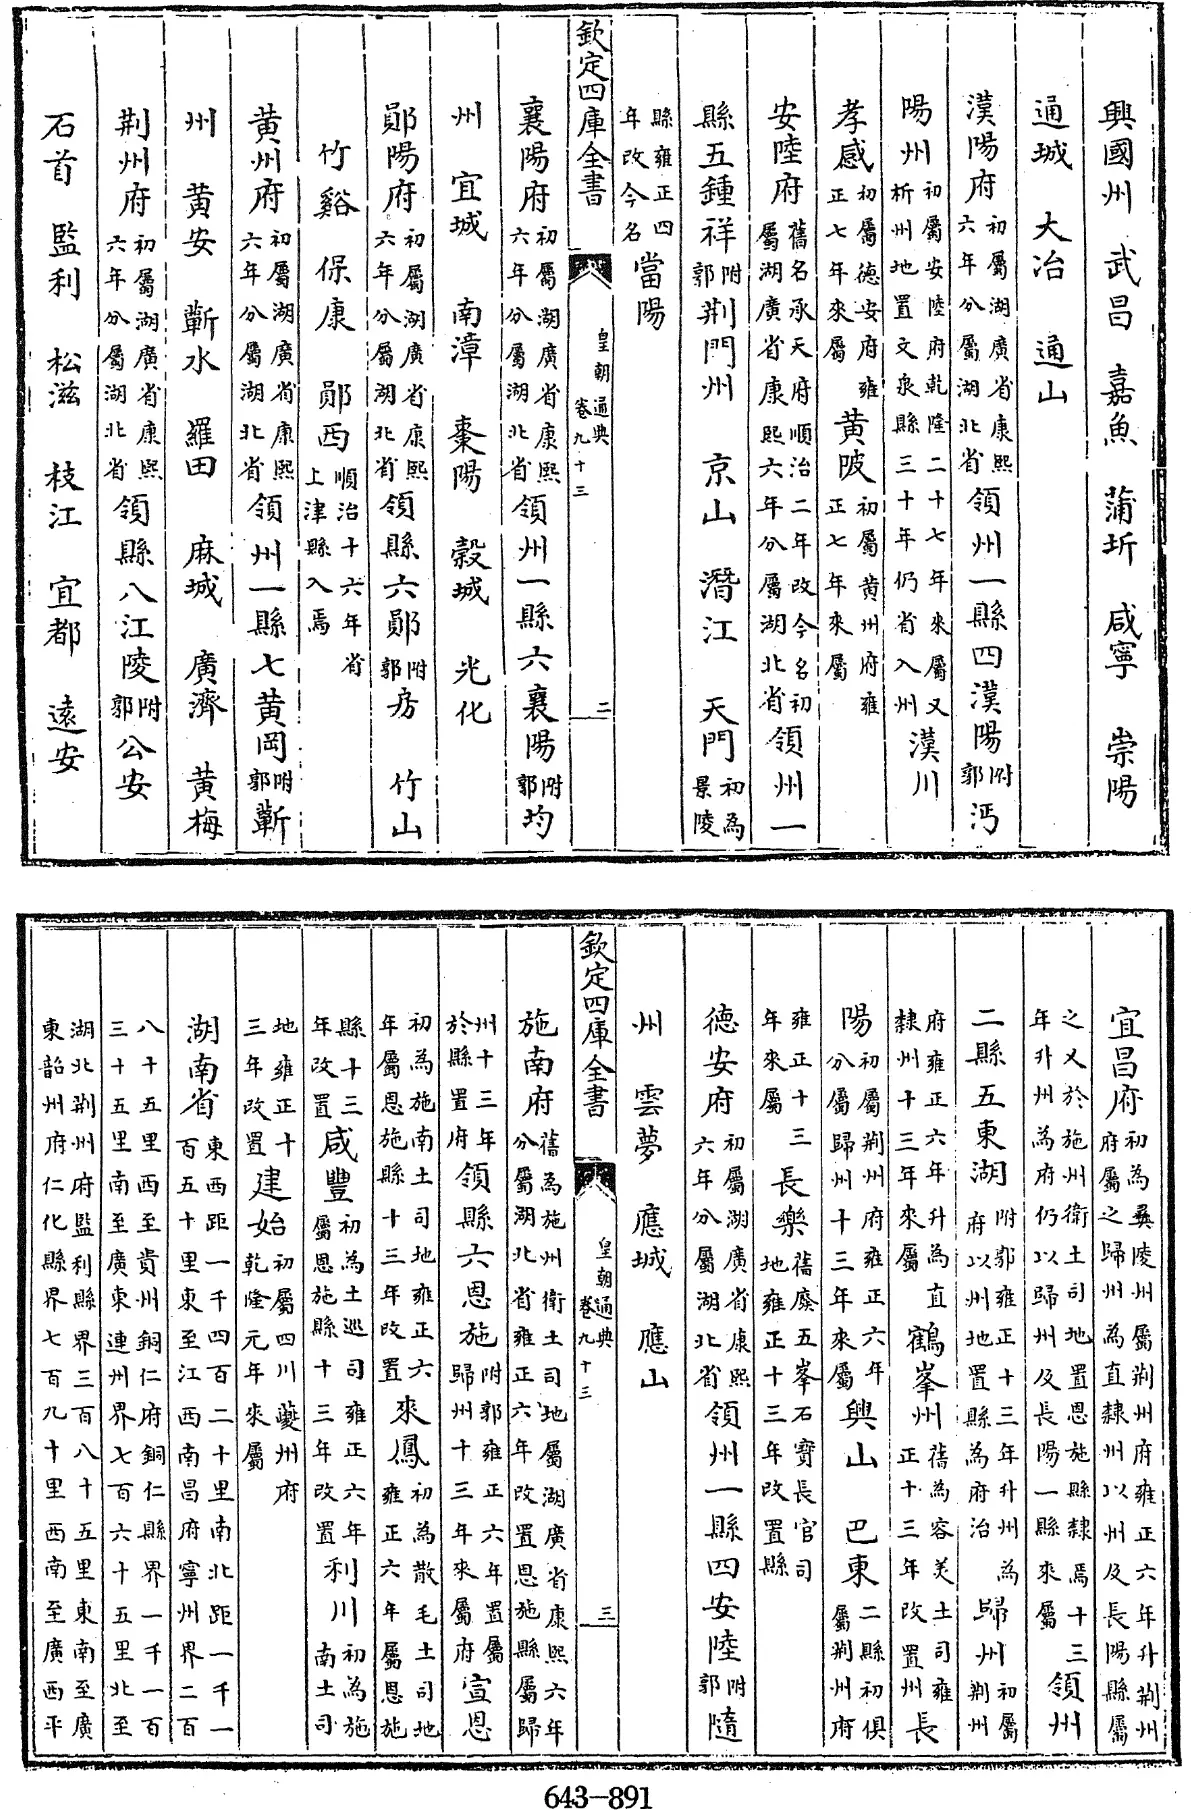 興國州 武昌 嘉魚 蒲圻 咸寧 崇陽
通城 大冶 通山
漢陽府初屬湖廣省康熙六年分屬湖北省領州一縣四漢陽附郭沔
陽州初屬安陸府乾隆二十七年來屬又析州地置文泉縣三十年仍省入州漢川
孝感初屬德安府雍正七年來屬黄陂初屬黄州府雍正七年來屬
安陸府舊名承天府順治二年改今名初屬湖廣省康熙六年分屬湖北省領州一
縣五鍾祥附郭荆門州 京山 潛江 天門初為景陵
縣雍正四年改今名當陽
欽定四庫全書 皇朝通典 卷九十三 二
襄陽府初屬湖廣省康熙六年分屬湖北省領州一縣六襄陽附郭均
州 宜城 南漳 棗陽 穀城 光化
鄖陽府初屬湖廣省康熙六年分屬湖北省領縣六鄖附郭房 竹山
竹谿 保康 鄖西順治十六年省上津縣入焉
黄州府初屬湖廣省康熙六年分屬湖北省領州一縣七黄岡附郭蘄
州 黄安 蘄水 羅田 麻城 廣濟 黄梅
荆州府初屬湖廣省康熙六年分屬湖北省領縣八江陵附郭公安
石首 監利 松滋 枝江 宜都 遠安
宜昌府初為彝陵州屬荆州府雍正六年升荆州府屬之歸州為直隸州以州及長陽縣屬
之又於施州衛土司地置恩施縣隸焉十三年升州為府仍以歸州及長陽一縣來屬領州
二縣五東湖附郭雍正十三年升州為府以州地置縣為府治歸州初屬荆州
府雍正六年升為直隸州十三年來屬鶴峯州舊為容美土司雍正十三年改置州長
陽初屬荆州府雍正六年分屬歸州十三年來屬興山 巴東二縣初俱屬荆州府
雍正十三年來屬長樂舊廢五峯石寶長官司地雍正十三年改置縣
德安府初屬湖廣省康熙六年分屬湖北省領州一縣四安陸附郭隨
州 雲夢 應城 應山
欽定四庫全書 皇朝通典 卷九十三 三
施南府舊為施州衛土司地屬湖廣省康熙六年分屬湖北省雍正六年改置恩施縣屬歸
州十三年於縣置府領縣六恩施附郭雍正六年置屬歸州十三年來屬府宣恩
初為施南土司地雍正六年屬恩施縣十三年改置來鳳初為散毛土司地雍正六年屬恩施
縣十三年改置咸豐初為土巡司雍正六年屬恩施縣十三年改置利川初為施南土司
地雍正十三年改置建始初屬四川夔州府乾隆元年來屬
湖南省東西距一千四百二十里南北距一千一百五十里東至江西南昌府寧州界二百
八十五里西至貴州銅仁府銅仁縣界一千一百三十五里南至廣東連州界七百六十五里北至
湖北荆州府監利縣界三百八十五里東南至廣東韶州府仁化縣界七百九十里西南至廣西平
643-891